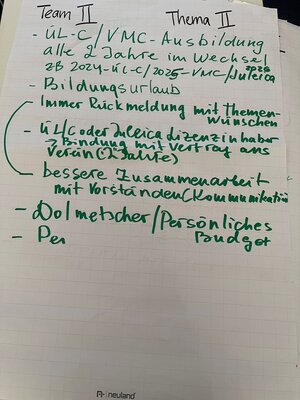 Team II Thema II
- ÜL-C/VMC-Ausbildung
alle 2 Jahre im Wechsel
zB 2024-ÜL-C/2025-VMC/2026 Juleica
- Bildungsurlaub
Immer Rückmeldung mit Themen-
wünschen
- ÜL/C oder Juleica Lizenzinhaber
→ Bindung mit Vertrag ans
Verein (2 Jahre)
bessere Zusammenarbeit
mit Vorständen (Kommunikation
- Dolmetscher/Persönliches
Budget
- Per
neuland